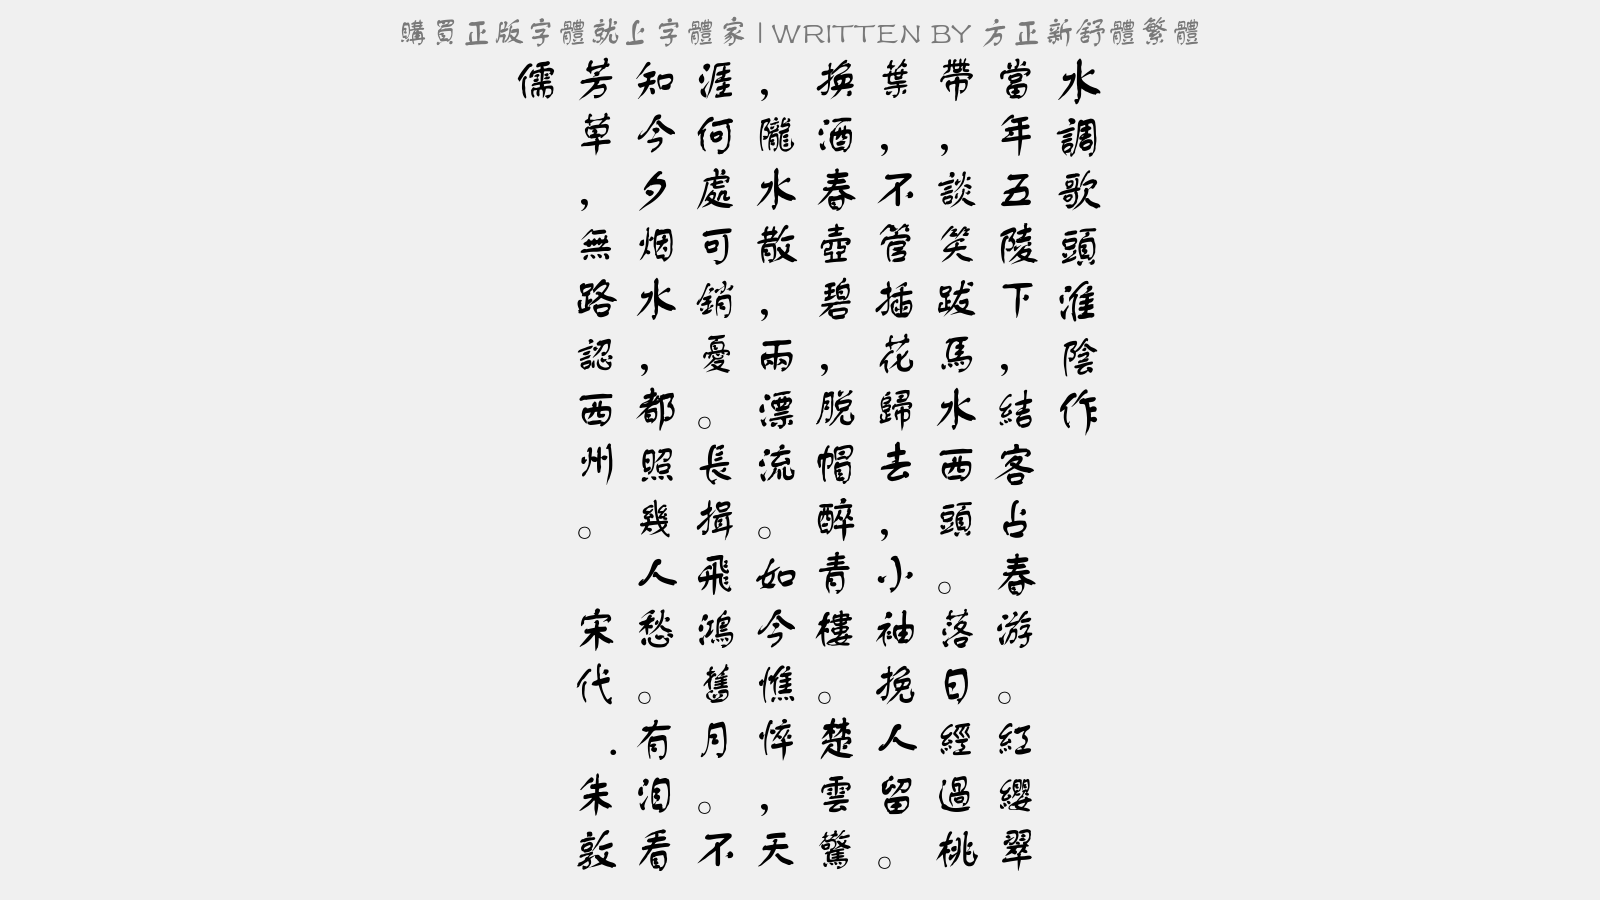 購買正版字體就上字體家 | WRITTEN BY 方正新舒體繁體
水調歌頭淮陰作
當年五陵下，結客占春游。紅纓翠
帶，談笑跋馬水西頭。落日經過桃
葉，不管插花歸去，小袖挽人留。
換酒春壺碧，脫帽醉青樓。楚雲驚
，隴水散，兩漂流。如今憔悴，天
涯何處可銷憂。長揖飛鴻舊月。不
知今夕烟水，都照幾人愁。有淚看
芳草，無路認西州。 宋代.朱敦
儒